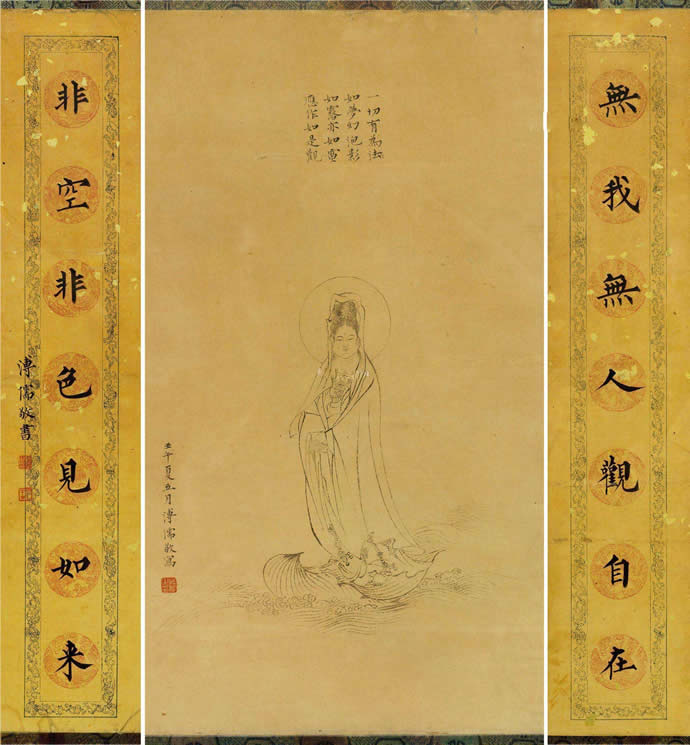 無我無人觀自在
一切有為法
如夢幻泡影
如露亦如電
應作如是觀
壬午夏五月溥儒敬寫
非空非色見如来
溥儒敬書